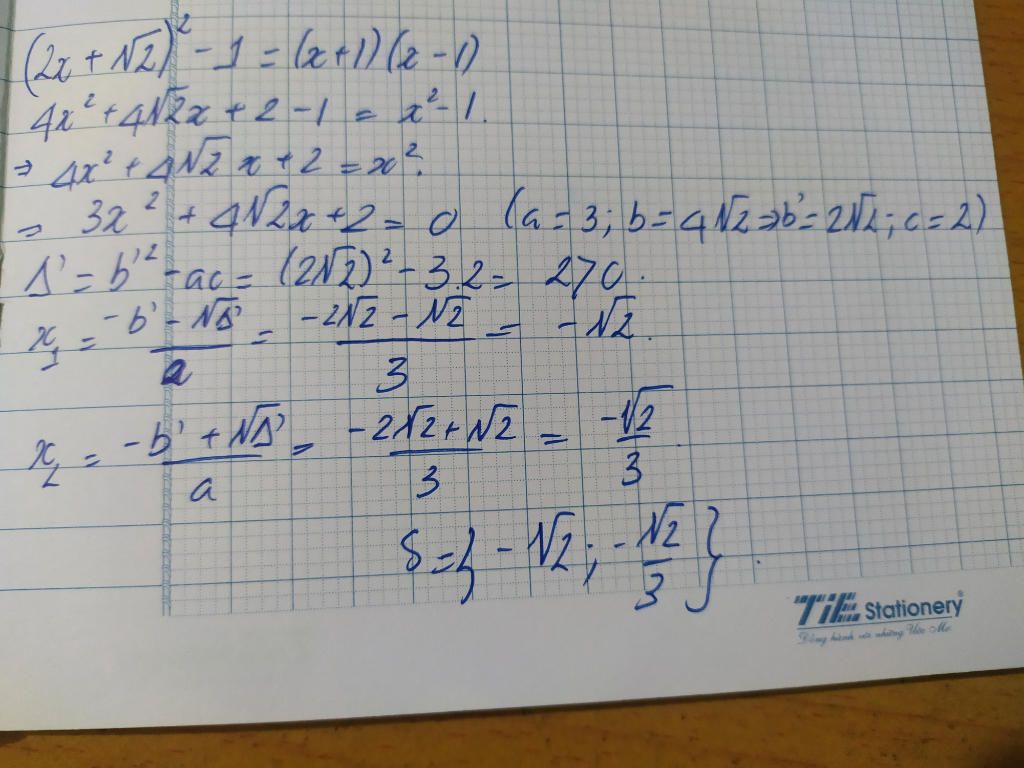 (2x + √2)² - 1 = (x+1)(x-1)
4x² + 4√2x + 2 - 1 = x² - 1.
⇒ 4x² + 4√2 x + 2 = x².
⇒ 3x² + 4√2x + 2 = 0 (a = 3; b = 4√2 ⇒ b' = 2√2; c = 2)
Δ' = b'² - ac = (2√2)² - 3.2 = 2 > 0.
x₁ = (-b' - √Δ')/a = (-2√2 - √2)/3 = -√2.
x₂ = (-b' + √Δ')/a = (-2√2 + √2)/3 = -√2/3.
S = {-√2; -√2/3}.
TiE Stationery®
Đồng hành với những Ước Mơ